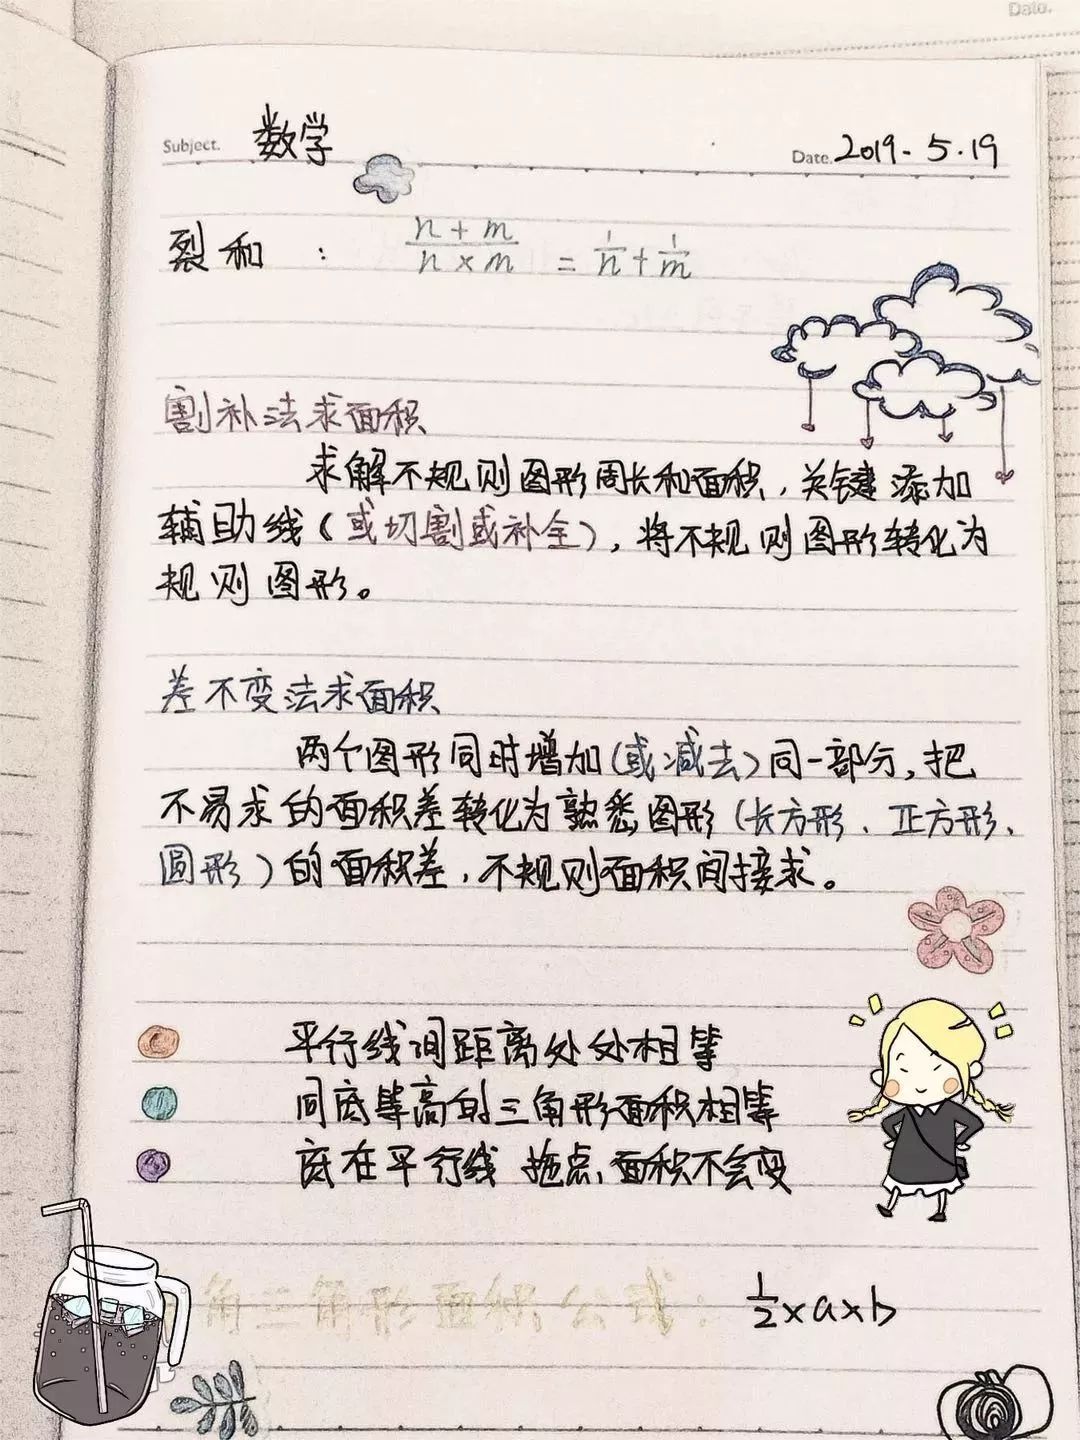 Date.
Subject. 数学
Date. 2019.5.19
裂和：(n+m)/(n×m) = 1/n + 1/m
割补法求面积
求解不规则图形周长和面积，关键添加
辅助线（或切割或补全），将不规则图形转化为
规则图形。
差不变法求面积
两个图形同时增加(或减去)同一部分，把
不易求的面积差转化为熟悉图形(长方形、正方形、
圆形)的面积差，不规则面积间接求。
平行线间距离处处相等
同底等高的三角形面积相等
底在平行线 拖点，面积不会变
角三角形面积公式： 1/2×a×b